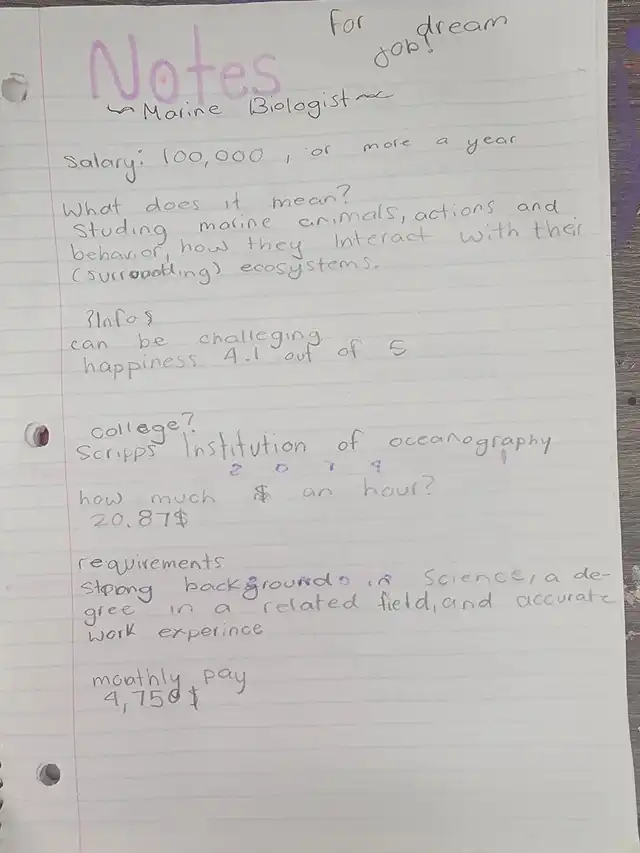 For dream
job!
Notes
~Marine Biologist~
Salary: 100,000, or more a year
What does it mean?
Studing marine animals, actions and
behavior, how they Interact with their
( ) ecosystems.
?Info?
can be challeging
happiness 4.1 out of 5
college?
Scripps Institution of oceanography
how much $ an hour?
20.87$
requirements
Strong backgrounds in Science, a de-
gree in a related field, and accurate
work experince
monthly pay
4,750$